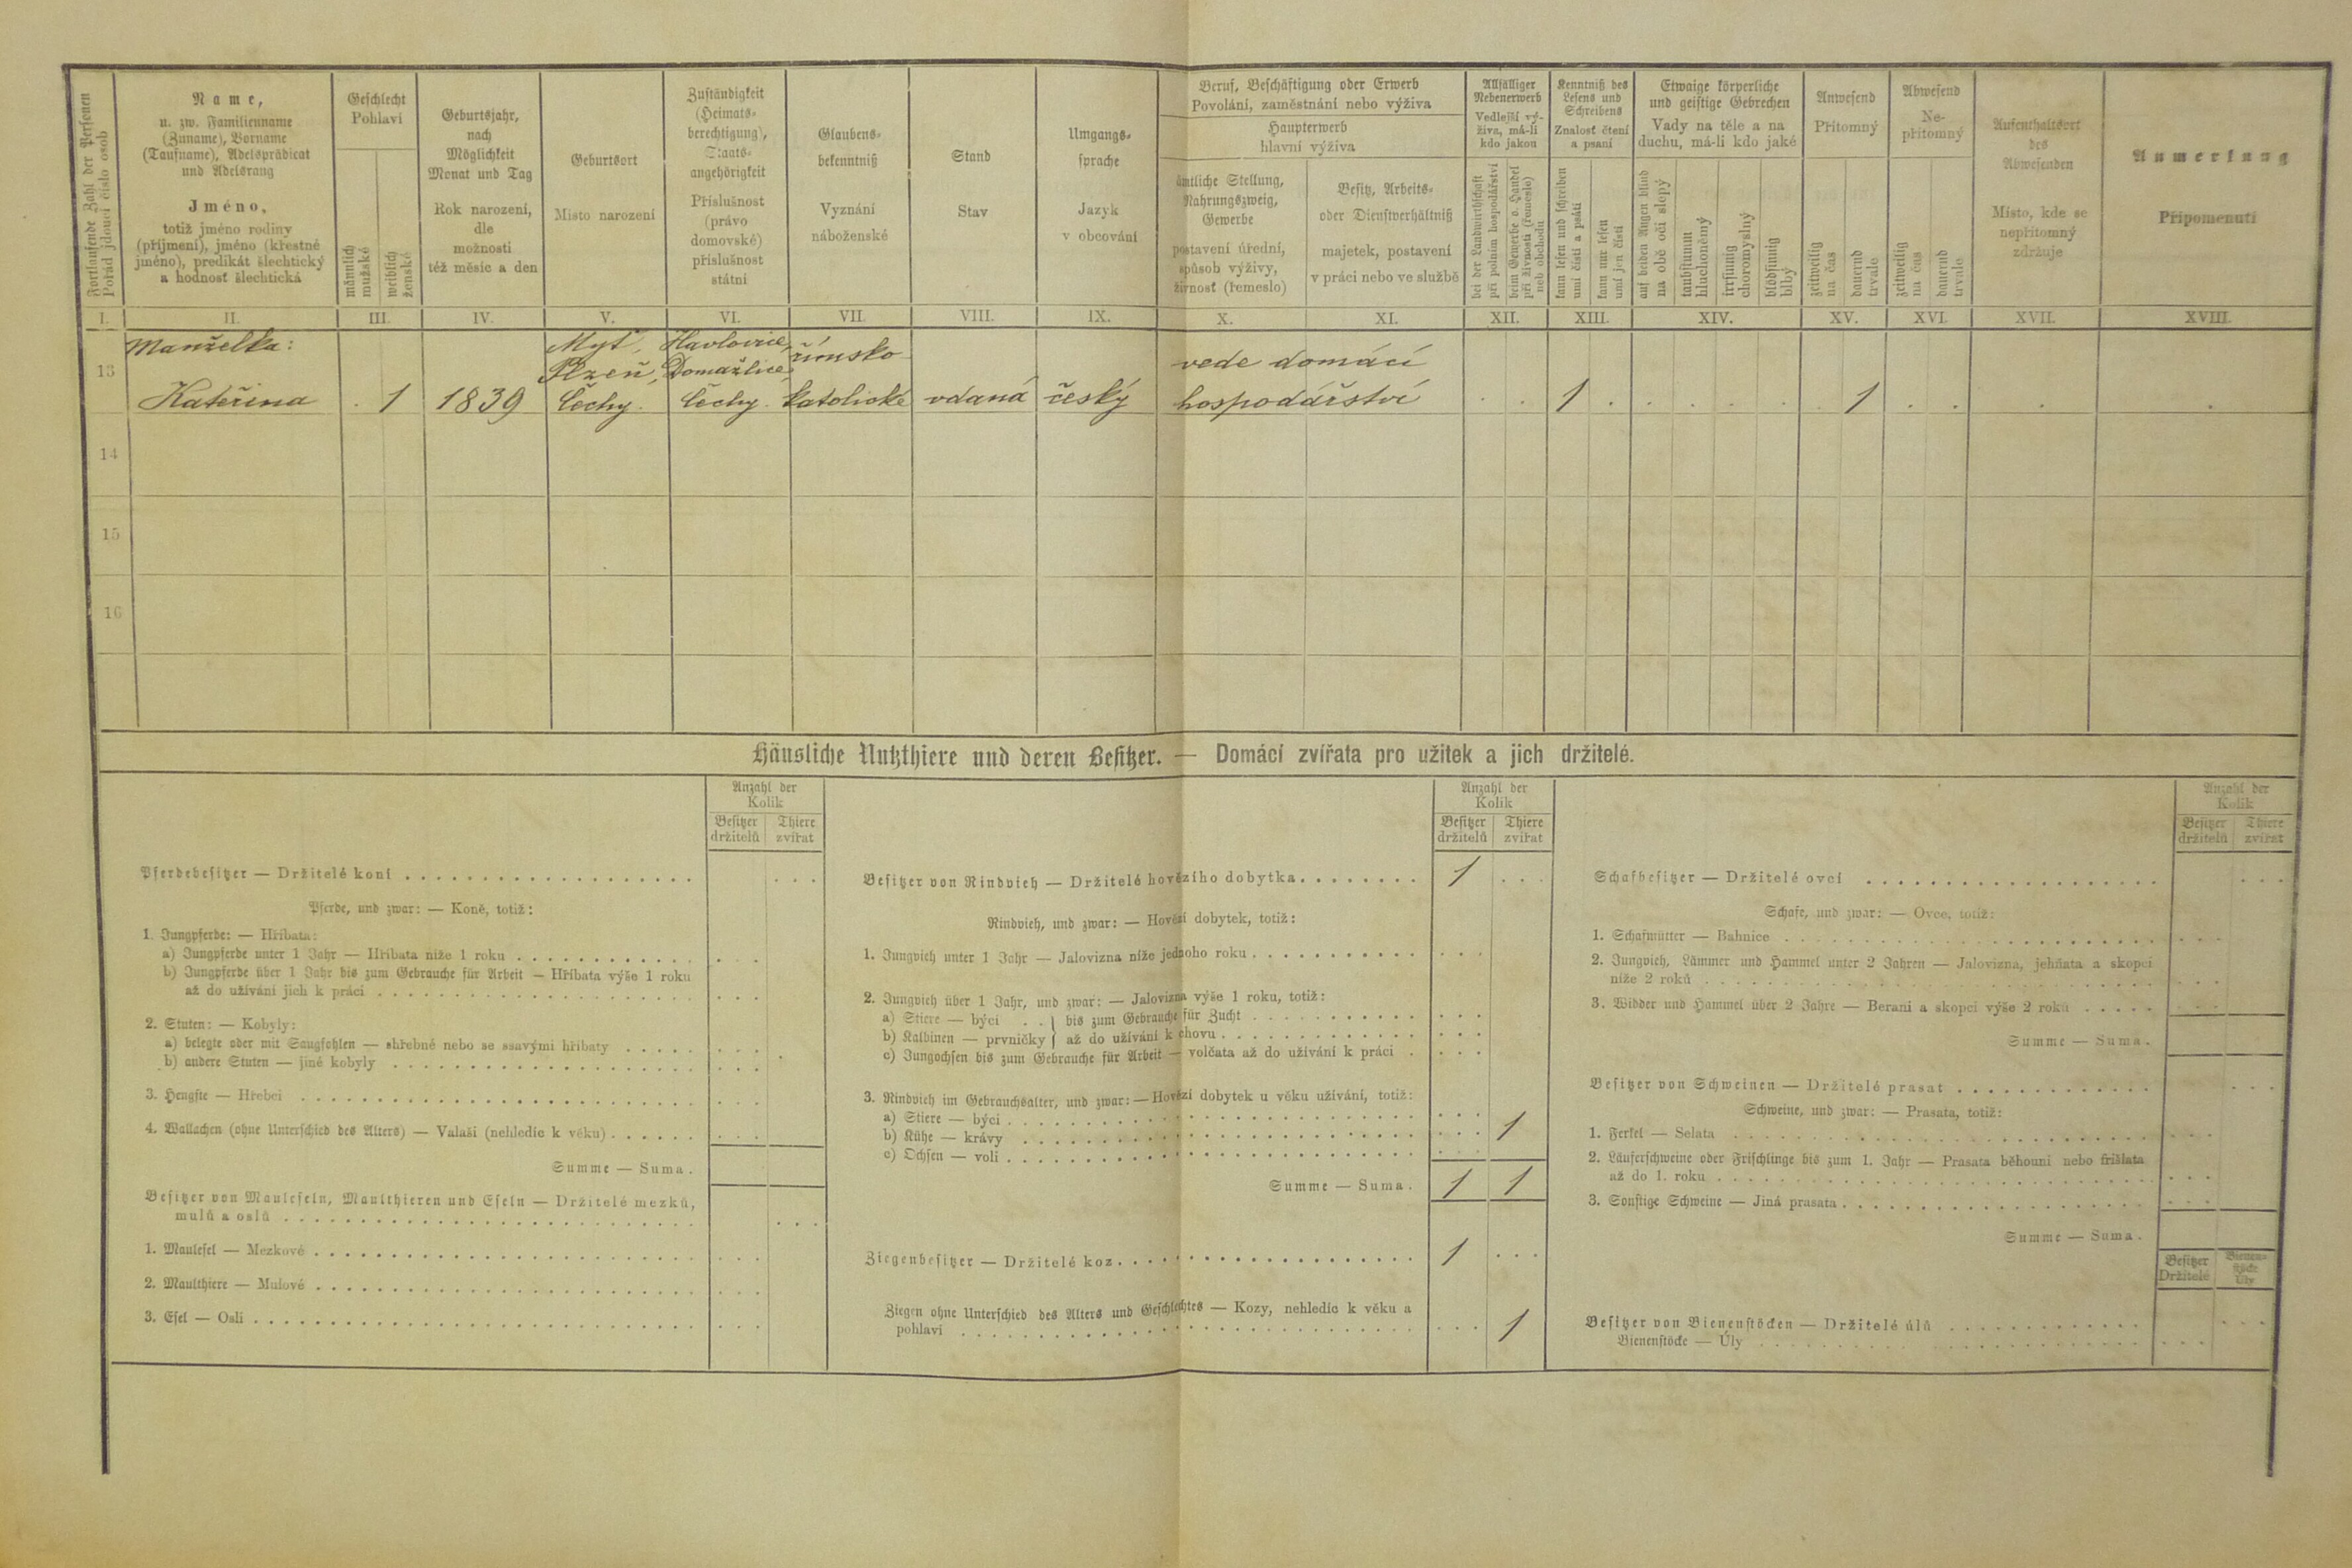 Fortlaufende Zahl der Personen
Pořád jdoucí číslo osob
Name,
u. zw. Familienname
(Zuname), Vorname
(Taufname), Adelsprädicat
und Adelsrang
Jméno,
totiž jméno rodiny
(příjmení), jméno (křestné
jméno), predikát šlechtický
a hodnosť šlechtická
Geschlecht
Pohlaví
männlich
mužské
weiblich
ženské
Geburtsjahr,
nach
Möglichkeit
Monat und Tag
Rok narození,
dle
možnosti
též měsíc a den
Geburtsort
Místo narození
Zuständigkeit
(Heimats-
berechtigung),
Staats-
angehörigkeit
Příslušnost
(právo
domovské)
příslušnost
státní
Glaubens-
bekenntniß
Vyznání
náboženské
Stand
Stav
Umgangs-
sprache
Jazyk
v obcování
Beruf, Beschäftigung oder Erwerb
Povolání, zaměstnání nebo výživa
Haupterwerb
hlavní výživa
ämtliche Stellung,
Nahrungszweig,
Gewerbe
postavení úřední,
způsob výživy,
živnosť (řemeslo)
Besitz, Arbeits-
oder Dienstverhältniß
majetek, postavení
v práci nebo ve službě
Allfälliger
Nebenerwerb
Vedlejší vý-
živa, má-li
kdo jakou
bei der Landwirthschaft
při polním hospodářství
beim Gewerbe o. Handel
při živnosti (řemesle)
neb obchodu
Kenntniß des
Lesens und
Schreibens
Znalosť čtení
a psaní
kann lesen und schreiben
umí čísti a psáti
kann nur lesen
umí jen čísti
Etwaige körperliche
und geistige Gebrechen
Vady na těle a na
duchu, má-li kdo jaké
auf beiden Augen blind
na obě oči slepý
taubstumm
hluchoněmý
irrsinnig
choromyslný
blödsinnig
blbý
Anwesend
Přítomný
zeitweilig
na čas
dauernd
trvale
Abwesend
Ne-
přítomný
zeitweilig
na čas
dauernd
trvale
Aufenthaltsort
des
Abwesenden
Místo, kde se
nepřítomný
zdržuje
Anmerkung
Připomenutí
I. II. III. IV. V. VI. VII. VIII. IX. X. XI. XII. XIII. XIV. XV. XVI. XVII. XVIII.
Manželka: Myť, Havlovice, římsko- vede domácí
13 Plzeň, Domažlice,
Kateřina . 1 1839 Čechy. Čechy. katolické vdaná český hospodářství . . 1 . . . . . . 1 . . . .
14
15
16
Häusliche Nutzthiere und deren Besitzer. — Domácí zvířata pro užitek a jich držitelé.
Anzahl der
Kolik
Besitzer Thiere
držitelů zvířat
Pferdebesitzer — Držitelé koní
Pferde, und zwar: — Koně, totiž:
1. Jungpferde: — Hříbata:
a) Jungpferde unter 1 Jahr — Hříbata níže 1 roku
b) Jungpferde über 1 Jahr bis zum Gebrauche für Arbeit — Hříbata výše 1 roku
až do užívání jich k práci
2. Stuten: — Kobyly:
a) belegte oder mit Saugfohlen — shřebné nebo se ssavými hříbaty
b) andere Stuten — jiné kobyly
3. Hengste — Hřebci
4. Wallachen (ohne Unterschied des Alters) — Valaši (nehledíc k věku)
Summe — Suma.
Besitzer von Mauleseln, Maulthieren und Eseln — Držitelé mezků,
mulů a oslů
1. Maulesel — Mezkové
2. Maulthiere — Mulové
3. Esel — Osli
Anzahl der
Kolik
Besitzer Thiere
držitelů zvířat
Besitzer von Rindvieh — Držitelé hovězího dobytka 1
Rindvieh, und zwar: — Hovězí dobytek, totiž:
1. Jungvieh unter 1 Jahr — Jalovizna níže jednoho roku
2. Jungvieh über 1 Jahr, und zwar: — Jalovizna výše 1 roku, totiž:
a) Stiere — býci . . } bis zum Gebrauche für Zucht
b) Kalbinen — prvničky } až do užívání k chovu
c) Jungochsen bis zum Gebrauche für Arbeit — volčata až do užívání k práci
3. Rindvieh im Gebrauchsalter, und zwar: — Hovězí dobytek u věku užívání, totiž:
a) Stiere — býci
b) Kühe — krávy 1
c) Ochsen — voli
Summe — Suma. 1 1
Ziegenbesitzer — Držitelé koz 1
Ziegen ohne Unterschied des Alters und Geschlechtes — Kozy, nehledíc k věku a
pohlaví 1
Anzahl der
Kolik
Besitzer Thiere
držitelů zvířat
Schafbesitzer — Držitelé ovcí
Schafe, und zwar: — Ovce, totiž:
1. Schafmütter — Bahnice
2. Jungvieh, Lämmer und Hammel unter 2 Jahren — Jalovizna, jehňata a skopci
níže 2 roků
3. Widder und Hammel über 2 Jahre — Berani a skopci výše 2 roků
Summe — Suma.
Besitzer von Schweinen — Držitelé prasat
Schweine, und zwar: — Prasata, totiž:
1. Ferkel — Selata
2. Läuferschweine oder Frischlinge bis zum 1. Jahr — Prasata běhouni nebo frišlata
až do 1. roku
3. Sonstige Schweine — Jiná prasata
Summe — Suma.
Besitzer Bienen-
stöcke
Držitelé Úly
Besitzer von Bienenstöcken — Držitelé úlů
Bienenstöcke — Úly